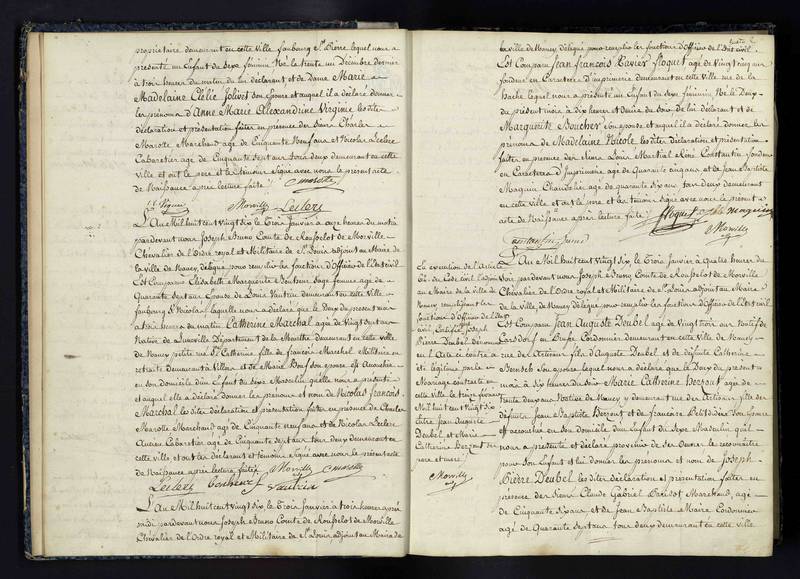 propriétaire demeurant en cette Ville faubourg St Pierre lequel nous a
présenté un Enfant du Sexe féminin Né le trente un Décembre dernier
à trois heures du matin de lui déclarant et de Dame Marie
Madelaine Clélie Jolivet son Epouse et auquel il a déclaré donner
les prénoms d'Anne Marie Alexandrine Virginie les dites
déclaration et présentation faites en présence des Sieurs Charles
Marotte Marchand agé de Cinquante Neuf ans et Nicolas Leclerc
Cabaretier agé de Cinquante Sept ans tous deux demeurant en cette
Ville et ont le pere et les témoins Signé avec nous le présent acte
de Naissance après lecture faite
C marotte
Morville Leclerc
L'An Mil huit cent vingt Six, le Trois Janvier à onze heures du matin
pardevant nous Joseph Bruno Comte de Rousselot de Morville
Chevalier de l'Ordre royal et Militaire de St Louis adjoint au Maire de
la ville de Nancy délégué pour remplir les fonctions d'Officier de l'Etat civil
Est Comparue Elisabeth Marguerite Bonheur Sage femme agée de
Quarante Sept ans Epouse de Louis Vautrin demeurant en cette Ville
faubourg St Nicolas laquelle nous a déclaré que le Deux du présent mois
à trois heures du matin Catherine Marchal agée de Vingt Sept ans
Native de Lunéville Département de la Meurthe demeurant en cette ville
de Nancy petite rue Ste Catherine fille de françois Marchal Militaire en
retraite Demeurant à Villers et de Marie son épouse est Accouchée
en son domicile d'un Enfant du Sexe Masculin qu'elle nous a présenté
et auquel elle a déclaré donner les prénoms et nom de Nicolas françois
Marchal les dites déclaration et présentation faites en présence de Charles
Marotte Marchand agé de Cinquante neuf ans et de Nicolas Leclerc
Ancien Cabaretier agé de Cinquante Sept ans tous deux demeurant en
cette ville, et ont les déclarant et témoins Signé avec nous le présent acte
de Naissance après lecture faite Morville C marotte
Leclerc bonheur f vautrin
L'An Mil huit cent vingt Six, le Trois Janvier à trois heures après
midi pardevant nous Joseph Bruno Comte de Rousselot de Morville
Chevalier de l'Ordre royal et Militaire de St Louis adjoint au Maire de
la ville de Nancy délégué pour remplir les fonctions d'Officier de l'Etat civil
Est Comparu Jean françois Xavier floquet agé de Vingt cinq ans
fondeur en Caractère d'imprimerie demeurant en cette Ville rue de la
hache lequel nous a présenté un Enfant du Sexe féminin Né le Deux
du présent mois à dix heures et demie du Soir de lui déclarant et de
Marguerite Boucher Son épouse et auquel il a déclaré donner les
prénoms de Madelaine Nicole les dites déclaration et présentation
faites en présence des Sieurs Louis Martial René Constantin fondeur
en Caractères d'Imprimerie agé de Quarante cinq ans et de Jean Baptiste
Chandelier agé de quarante Six ans tous deux demeurant
en cette ville et ont le pere et les témoins Signé avec nous le présent
acte de Naissance après lecture faite floquet
Constantin Morville
En exécution de l'Article
du Code civil
au Maire de la Ville de
Nancy remplissant les
fonctions d'Officier de l'Etat
civil, Certifions Joseph
Pierre Deubel dénommé
en l'Acte ci contre a
été légitimé par le
Mariage contracté en
cette Ville le
Mil huit cent Vingt Six
entre Jean Auguste
Deubel et Marie
Catherine Berzout Ses
pere et mere
Morville
L'An Mil huit cent vingt Six, le Trois Janvier à Quatre heures du
Soir pardevant nous Joseph Bruno Comte de Rousselot de Morville
Chevalier de l'Ordre royal et Militaire de St Louis adjoint au Maire
de la ville, de Nancy délégué pour remplir les fonctions d'Officier de l'Etat civil
Est Comparu Jean Auguste Deubel agé de Vingt trois ans Natif de
en Prusse Cordonnier demeurant en cette Ville de Nancy
rue des Artisans fils d'Auguste Deubel et de défunte Catherine
Son épouse lequel nous a déclaré que le Deux du présent
mois à Six heures du Soir Marie Catherine Berzout agée de
trente deux ans Native de Nancy y demeurant rue des Artisans fille des
défunts Jean Baptiste Berzout et de francoise Petitdidier Son Epouse
est accouchée en Son domicile d'un Enfant du Sexe Masculin qu'il
nous a présenté et déclaré provenir de Ses Oeuvres le reconnaître
pour Son Enfant et lui donner les prénoms et nom de Joseph
Pierre Deubel les dites déclaration et présentation faites en
présence des Sieurs Claude Gabriel Marchand, agé
de Cinquante Six ans et de Jean Baptiste Maire Cordonnier
agé de Quarante Sept ans tous deux demeurant en cette ville